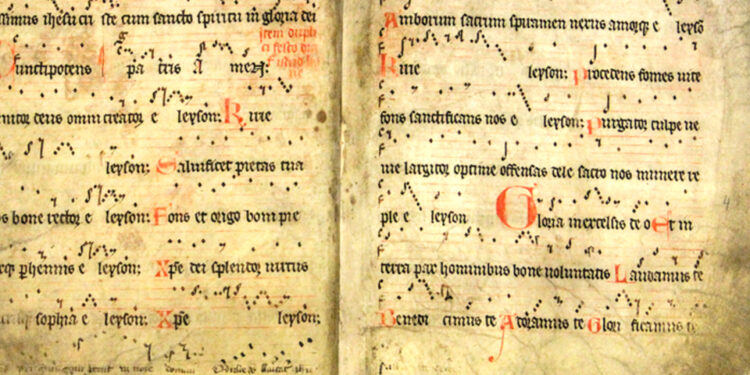 ssimus ihesu cum sancto spiritu in gloria dei
item dupli
ci festo
unctipotens pa tris A men:
enitor deus omni creator e leyson: Kirie
leyson: Salvificet pietas tua
s bone rector e leyson: Fons et origo boni pie
phennis e leyson: Xpe dei splendor virtus
sophia e leyson: Xpe leyson:
Amborum sacrum spiramen nexus amorque e leyso
Kirie leyson: Procedens fomes vite
fons sanctificans nos e leyson: Purgator culpe ve
nie largitor optime offensas dele sacro nos munere re
ple e leyson Gloria in excelsis de o Et in
terra pax hominibus bone voluntatis Laudamus te
Benedi cimus te Adoramus te Glori ficamus te